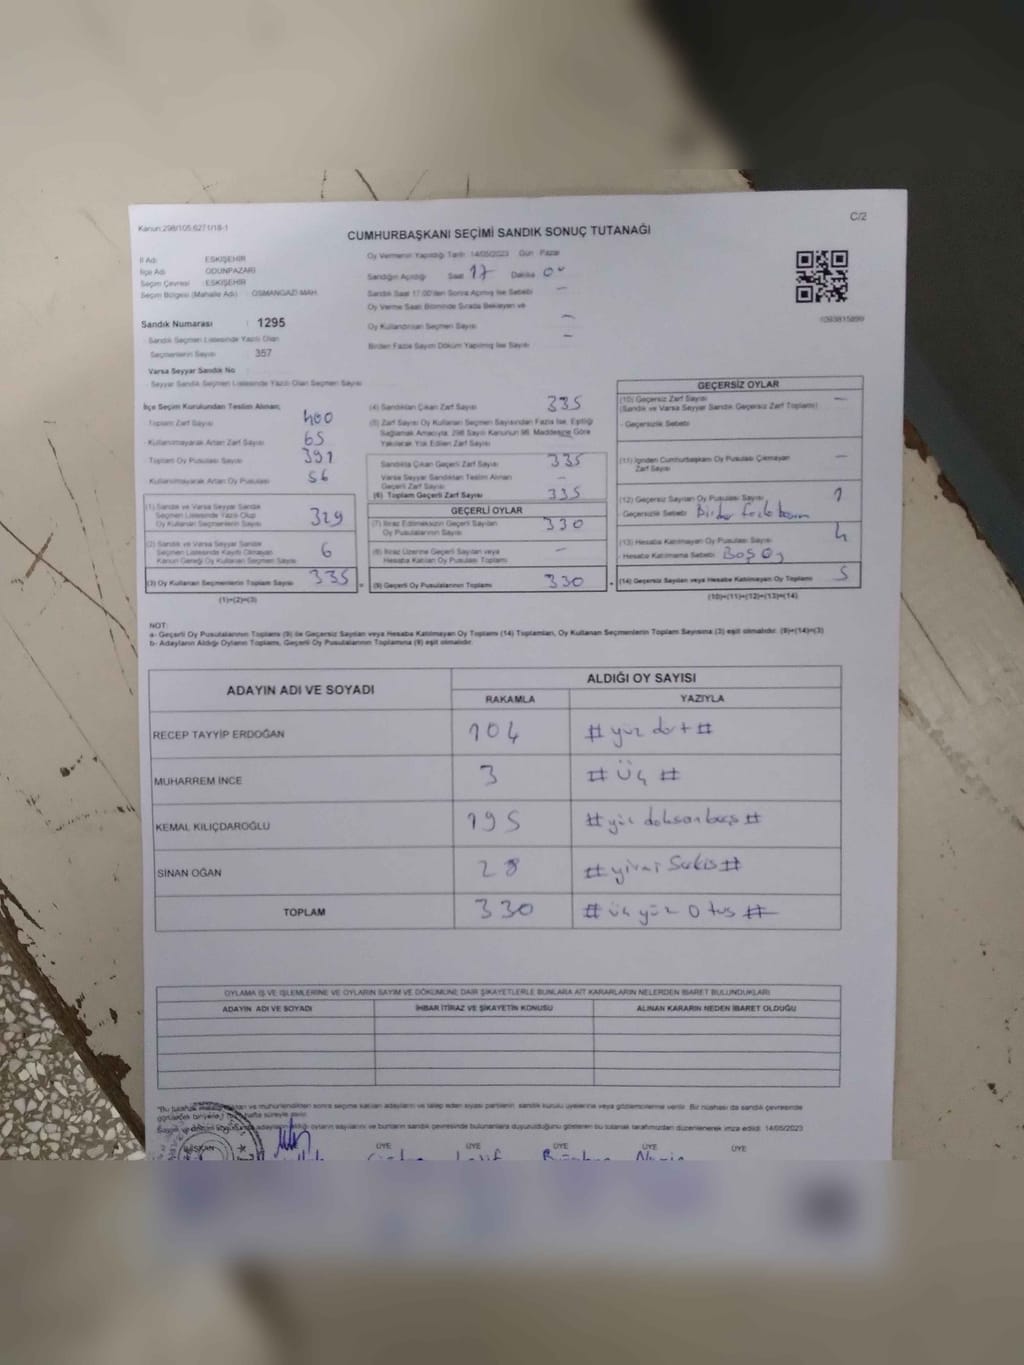 Kanun:298/105;6271/18-1
C/2
CUMHURBAŞKANI SEÇİMİ SANDIK SONUÇ TUTANAĞI
İl Adı : ESKİŞEHİR
İlçe Adı : ODUNPAZARI
Seçim Çevresi : ESKİŞEHİR
Seçim Bölgesi (Mahalle Adı) : OSMANGAZİ MAH.
Oy Vermenin Yapıldığı Tarih: 14/05/2023 Gün: Pazar
Sandığın Açıldığı Saat 17 Dakika 00
Sandık Saat 17.00'den Sonra Açılmış İse Sebebi —
Oy Verme Saati Bitiminde Sırada Bekleyen ve
Oy Kullandırılan Seçmen Sayısı —
Birden Fazla Sayım Döküm Yapılmış İse Sayısı —
1093815899
Sandık Numarası : 1295
Sandık Seçmen Listesinde Yazılı Olan
Seçmenlerin Sayısı : 357
Varsa Seyyar Sandık No
Seyyar Sandık Seçmen Listesinde Yazılı Olan Seçmen Sayısı
İlçe Seçim Kurulundan Teslim Alınan;
Toplam Zarf Sayısı 400
Kullanılmayarak Artan Zarf Sayısı 65
Toplam Oy Pusulası Sayısı 391
Kullanılmayarak Artan Oy Pusulası 56
(1) Sandık ve Varsa Seyyar Sandık
Seçmen Listesinde Yazılı Olup
Oy Kullanan Seçmenlerin Sayısı 329
(2) Sandık ve Varsa Seyyar Sandık
Seçmen Listesinde Kayıtlı Olmayan
Kanun Gereği Oy Kullanan Seçmen Sayısı 6
(3) Oy Kullanan Seçmenlerin Toplam Sayısı 335
(1)+(2)=(3)
(4) Sandıktan Çıkan Zarf Sayısı 335
(5) Zarf Sayısı Oy Kullanan Seçmen Sayısından Fazla İse, Eşitliği
Sağlamak Amacıyla; 298 Sayılı Kanunun 98. Maddesine Göre
Yakılarak Yok Edilen Zarf Sayısı
Sandıkta Çıkan Geçerli Zarf Sayısı 335
Varsa Seyyar Sandıktan Teslim Alınan
Geçerli Zarf Sayısı —
(6) Toplam Geçerli Zarf Sayısı 335
GEÇERLİ OYLAR
(7) İtiraz Edilmeksizin Geçerli Sayılan
Oy Pusulalarının Sayısı 330
(8) İtiraz Üzerine Geçerli Sayılan veya
Hesaba Katılan Oy Pusulası Toplamı —
(9) Geçerli Oy Pusulalarının Toplamı 330
GEÇERSİZ OYLAR
(10) Geçersiz Zarf Sayısı —
(Sandık ve Varsa Seyyar Sandık Geçersiz Zarf Toplamı)
Geçersizlik Sebebi
(11) İçinden Cumhurbaşkanı Oy Pusulası Çıkmayan
Zarf Sayısı —
(12) Geçersiz Sayılan Oy Pusulası Sayısı 1
Geçersizlik Sebebi Birden fazla basım
(13) Hesaba Katılmayan Oy Pusulası Sayısı 4
Hesaba Katılmama Sebebi BOŞ Oy
(14) Geçersiz Sayılan veya Hesaba Katılmayan Oy Toplamı 5
(10)+(11)+(12)+(13)=(14)
NOT:
a- Geçerli Oy Pusulalarının Toplamı (9) ile Geçersiz Sayılan veya Hesaba Katılmayan Oy Toplamı (14) Toplamları, Oy Kullanan Seçmenlerin Toplam Sayısına (3) eşit olmalıdır. (9)+(14)=(3)
b- Adayların Aldığı Oyların Toplamı, Geçerli Oy Pusulalarının Toplamına (9) eşit olmalıdır.
ADAYIN ADI VE SOYADI
ALDIĞI OY SAYISI
RAKAMLA YAZIYLA
RECEP TAYYİP ERDOĞAN 104 # yüz dört #
MUHARREM İNCE 3 # üç #
KEMAL KILIÇDAROĞLU 195 # yüz doksan beş #
SİNAN OĞAN 28 # yirmi Sekiz #
TOPLAM 330 # üç yüz Otuz #
OYLAMA İŞ VE İŞLEMLERİNE VE OYLARIN SAYIM VE DÖKÜMÜNE DAİR ŞİKAYETLERLE BUNLARA AİT KARARLARIN NELERDEN İBARET BULUNDUKLARI
ADAYIN ADI VE SOYADI İHBAR İTİRAZ VE ŞİKAYETİN KONUSU ALINAN KARARIN NEDEN İBARET OLDUĞU
ve mühürlendikten sonra seçime katılan adayların ve talep eden siyasi partilerin sandık kurulu üyelerine veya gözlemcilerine verilir. Bir nüshası da sandık çevresinde
hafta süreyle asılır.
adayların aldığı oyların sayılarını ve bunların sandık çevresinde bulunanlara duyurulduğunu gösteren bu tutanak tarafımızdan düzenlenerek imza edildi. 14/05/2023
BAŞKAN ÜYE ÜYE ÜYE ÜYE ÜYE